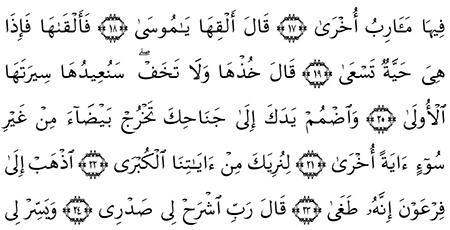 فِيهَا مَـَٔارِبُ أُخْرَىٰ ﴿١٧﴾ قَالَ أَلْقِهَا يَٰمُوسَىٰ ﴿١٨﴾ فَأَلْقَىٰهَا فَإِذَا
هِىَ حَيَّةٌ تَسْعَىٰ ﴿١٩﴾ قَالَ خُذْهَا وَلَا تَخَفْ ۖ سَنُعِيدُهَا سِيرَتَهَا
ٱلْأُولَىٰ ﴿٢٠﴾ وَٱضْمُمْ يَدَكَ إِلَىٰ جَنَاحِكَ تَخْرُجْ بَيْضَآءَ مِنْ غَيْرِ
سُوٓءٍ ءَايَةً أُخْرَىٰ ﴿٢١﴾ لِنُرِيَكَ مِنْ ءَايَٰتِنَا ٱلْكُبْرَى ﴿٢٢﴾ ٱذْهَبْ إِلَىٰ
فِرْعَوْنَ إِنَّهُۥ طَغَىٰ ﴿٢٣﴾ قَالَ رَبِّ ٱشْرَحْ لِى صَدْرِى ﴿٢٤﴾ وَيَسِّرْ لِى